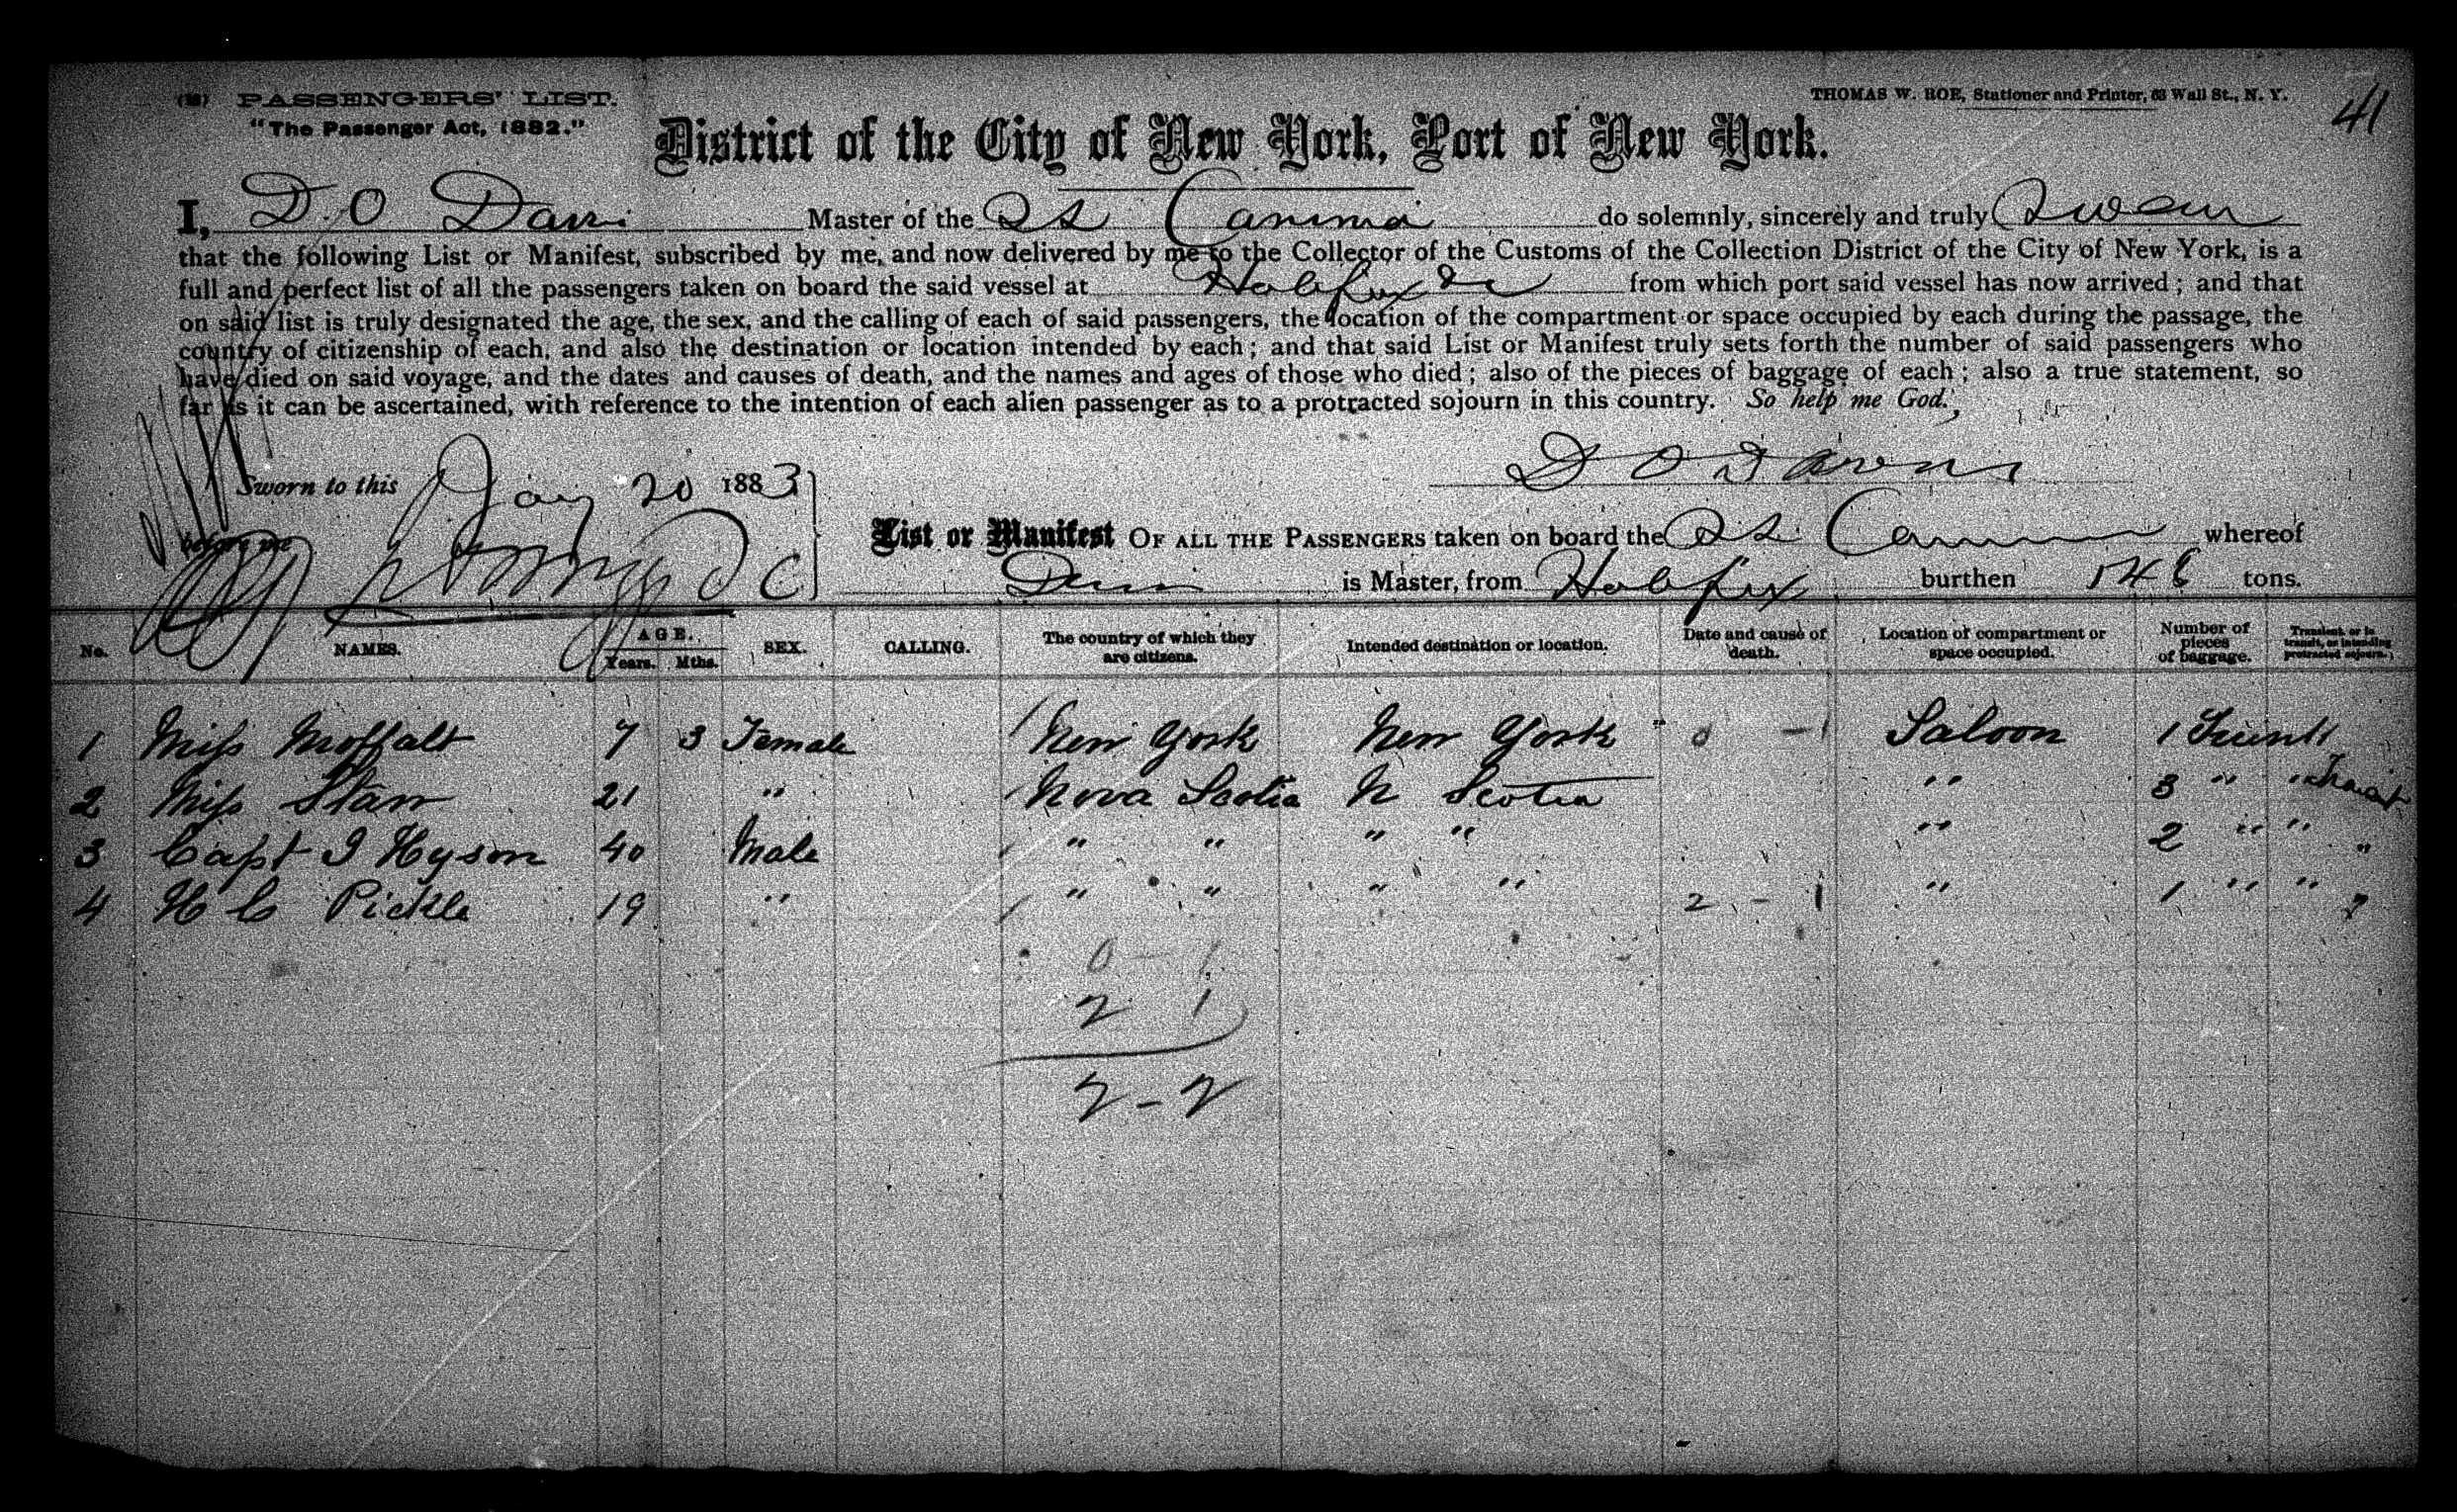 (B) PASSENGERS' LIST.
"The Passenger Act, 1882."
THOMAS W. ROE, Stationer and Printer, 63 Wall St., N. Y.
41
District of the City of New York, Port of New York.
I, D. O Davi Master of the SS Canima do solemnly, sincerely and truly Swear
that the following List or Manifest, subscribed by me, and now delivered by me to the Collector of the Customs of the Collection District of the City of New York, is a
full and perfect list of all the passengers taken on board the said vessel at Halifax from which port said vessel has now arrived; and that
on said list is truly designated the age, the sex, and the calling of each of said passengers, the location of the compartment or space occupied by each during the passage, the
country of citizenship of each, and also the destination or location intended by each; and that said List or Manifest truly sets forth the number of said passengers who
have died on said voyage, and the dates and causes of death, and the names and ages of those who died; also of the pieces of baggage of each; also a true statement, so
far as it can be ascertained, with reference to the intention of each alien passenger as to a protracted sojourn in this country. So help me God.
Sworn to this Jany 20 1883
before me
List or Manifest OF ALL THE PASSENGERS taken on board the SS. whereof
is Master, from Halifax burthen tons.
No. NAMES. AGE. Years. Mths. SEX. CALLING. The country of which they are citizens. Intended destination or location. Date and cause of death. Location of compartment or space occupied. Number of pieces of baggage. Transient, or in transit, or intending protracted sojourn.
1 Miss Moffatt 7 3 Female New York New York 0 - 1 Saloon 1 Trunk
2 Miss Starr 21 " Nova Scotia N Scotia " 3 " " Transit
3 Capt I Hyson 40 Male " " " " " 2 " " "
4 H C Pickle 19 " " " " " 2 - 1 " 1 " " "
0 - 1
2 1
2 - 2